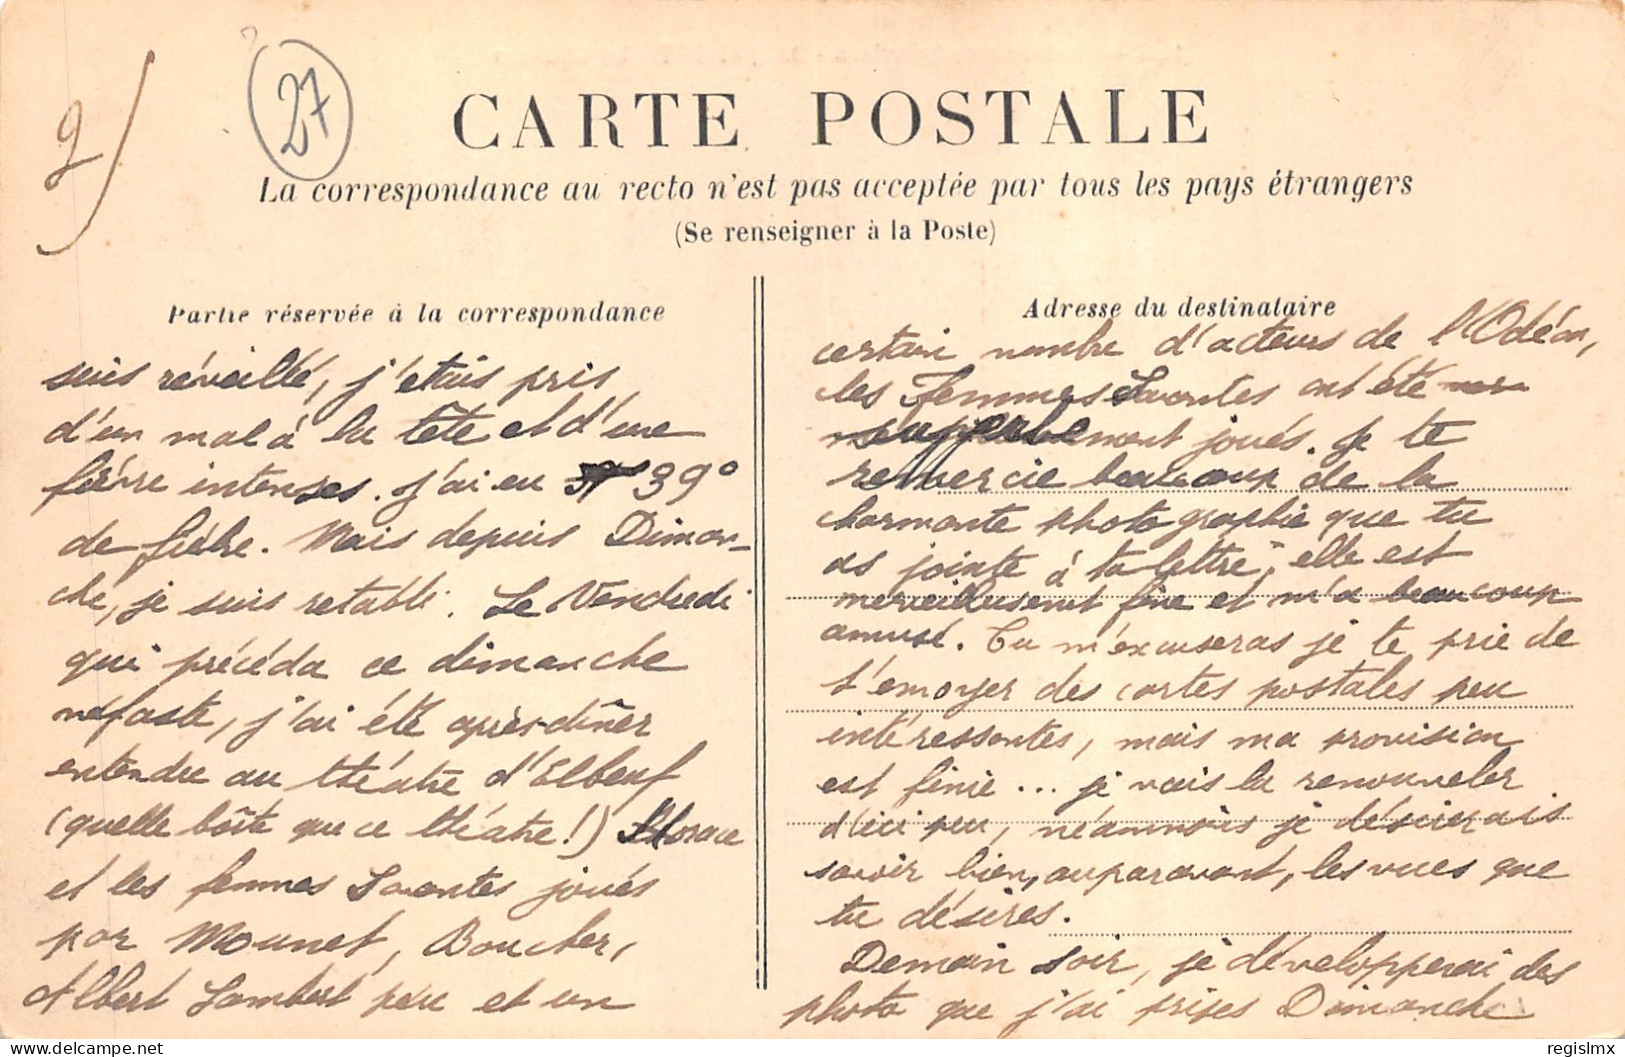 2)
27
CARTE POSTALE
La correspondance au recto n'est pas acceptée par tous les pays étrangers
(Se renseigner à la Poste)
Partie réservée à la correspondance
suis réveillé, j'étais pris
d'un mal à la tête et d'une
fièvre intenses. J'ai eu 39°
de fièbre. Mais depuis Diman-
che, je suis rétabli. Le Vendredi
qui précéda ce dimanche
néfaste, j'ai été après-dîner
entendre au théatre d'Elbeuf
(quelle boîte que ce théatre!) Horace
et les femmes Savantes joués
par Mounet, Boucher,
Albert Lambert père et un
Adresse du destinataire
certain nombre d'acteurs de l'Odéon,
les Femmes Savantes ont été
superbement joués. Je te
remercie beaucoup de la
charmante photographie que tu
as jointe à ta lettre, elle est
merveilleusement fine et m'a beaucoup
amusé. Tu m'excuseras je te prie de
t'envoyer des cartes postales peu
intéressantes, mais ma provision
est finie... je vais la renouveler
d'ici peu, néanmoins je désirerais
savoir bien, auparavant, les vues que
tu désires.
Demain soir, je développerai des
photo que j'ai prises Dimanche
regislmx